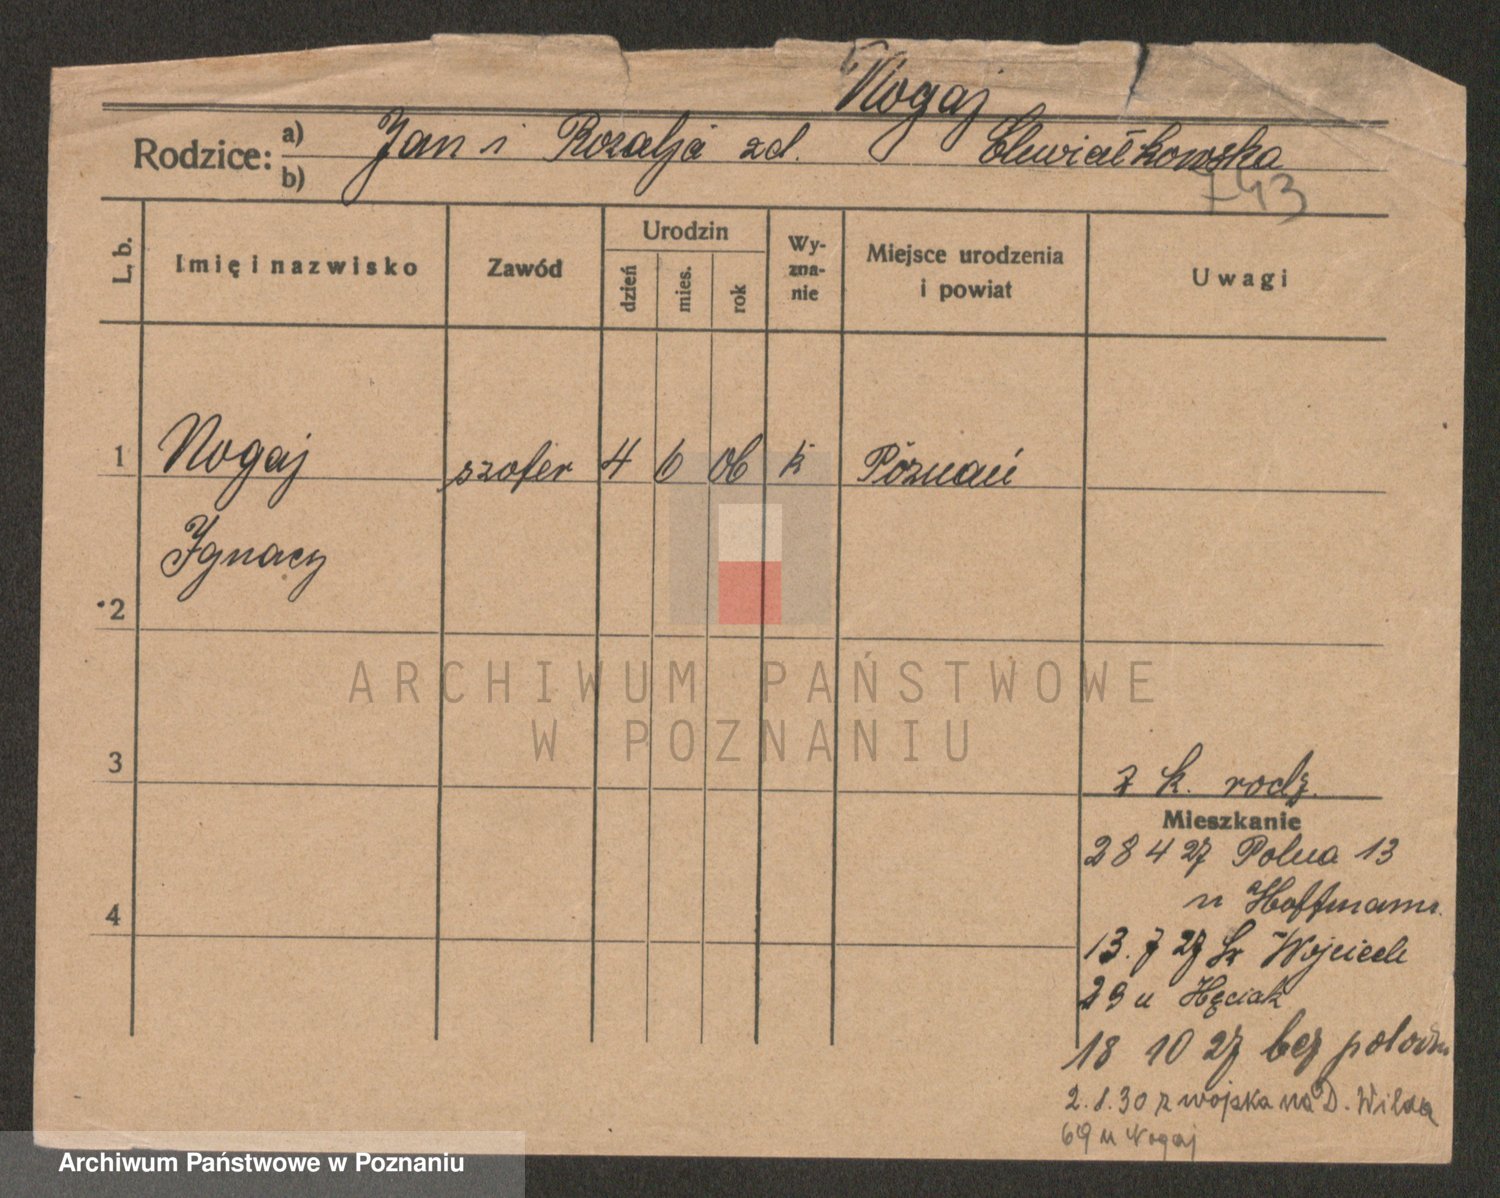 Nogaj
Rodzice: a) Jan i Rozalja zd. Chwiałkowska
b)
743
L. b. Imię i nazwisko Zawód Urodzin dzień mies. rok Wyzna-nie Miejsce urodzenia i powiat Uwagi
1 Nogaj szofer 4 6 06 k Poznań
Ignacy
2
ARCHIWUM PAŃSTWOWE
W POZNANIU
3
z k. rodz.
Mieszkanie
28 4 27 Polna 13
u Hoffmann
4
13. 7 27 Św Wojciech
29 u Hęciak
18 10 27 bez
2. 1. 30 z wojska na D. Wilda
69 u Nogaj
Archiwum Państwowe w Poznaniu